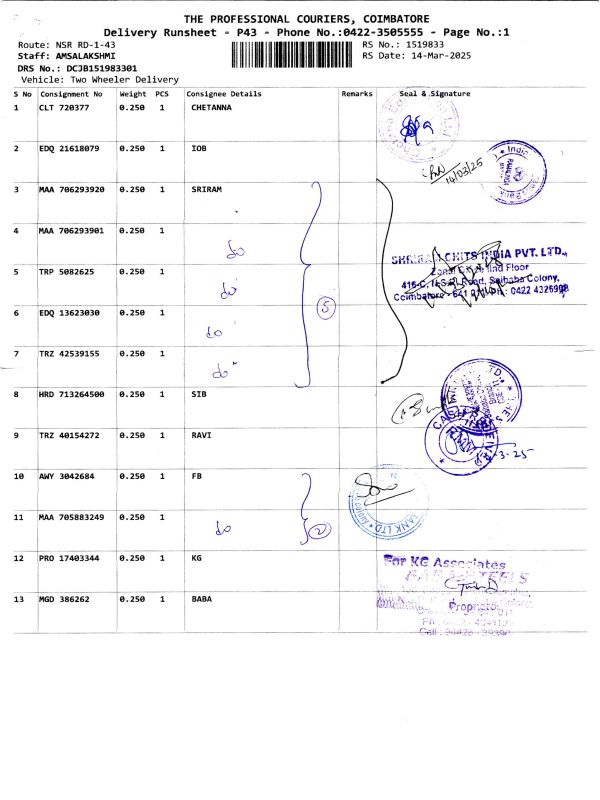 THE PROFESSIONAL COURIERS, COIMBATORE
Delivery Runsheet - P43 - Phone No.:0422-3505555 - Page No.:1
Route: NSR RD-1-43
RS No.: 1519833
Staff: AMSALAKSHMI
RS Date: 14-Mar-2025
DRS No.: DCJB151983301
Vehicle: Two Wheeler Delivery
S No Consignment No Weight PCS Consignee Details Remarks Seal & Signature
1 CLT 720377 0.250 1 CHETANNA
2 EDQ 21618079 0.250 1 IOB
14/03/25
3 MAA 706293920 0.250 1 SRIRAM
4 MAA 706293901 0.250 1 do
SHRIRAM CHITS INDIA PVT. LTD.,
5 TRP 5082625 0.250 1 do
Zonal Office IInd Floor
416-C, N.S.R. Road, Saibaba Colony,
Coimbatore - 641 Ph: 0422 4326998
6 EDQ 13623030 0.250 1 do
5
7 TRZ 42539155 0.250 1 do
8 HRD 713264500 0.250 1 SIB
9 TRZ 40154272 0.250 1 RAVI
10 AWY 3042684 0.250 1 FB
11 MAA 705883249 0.250 1 do
2
BANK LTD
12 PRO 17403344 0.250 1 KG
For KG Associates
13 MGD 386262 0.250 1 BABA
Proprietor